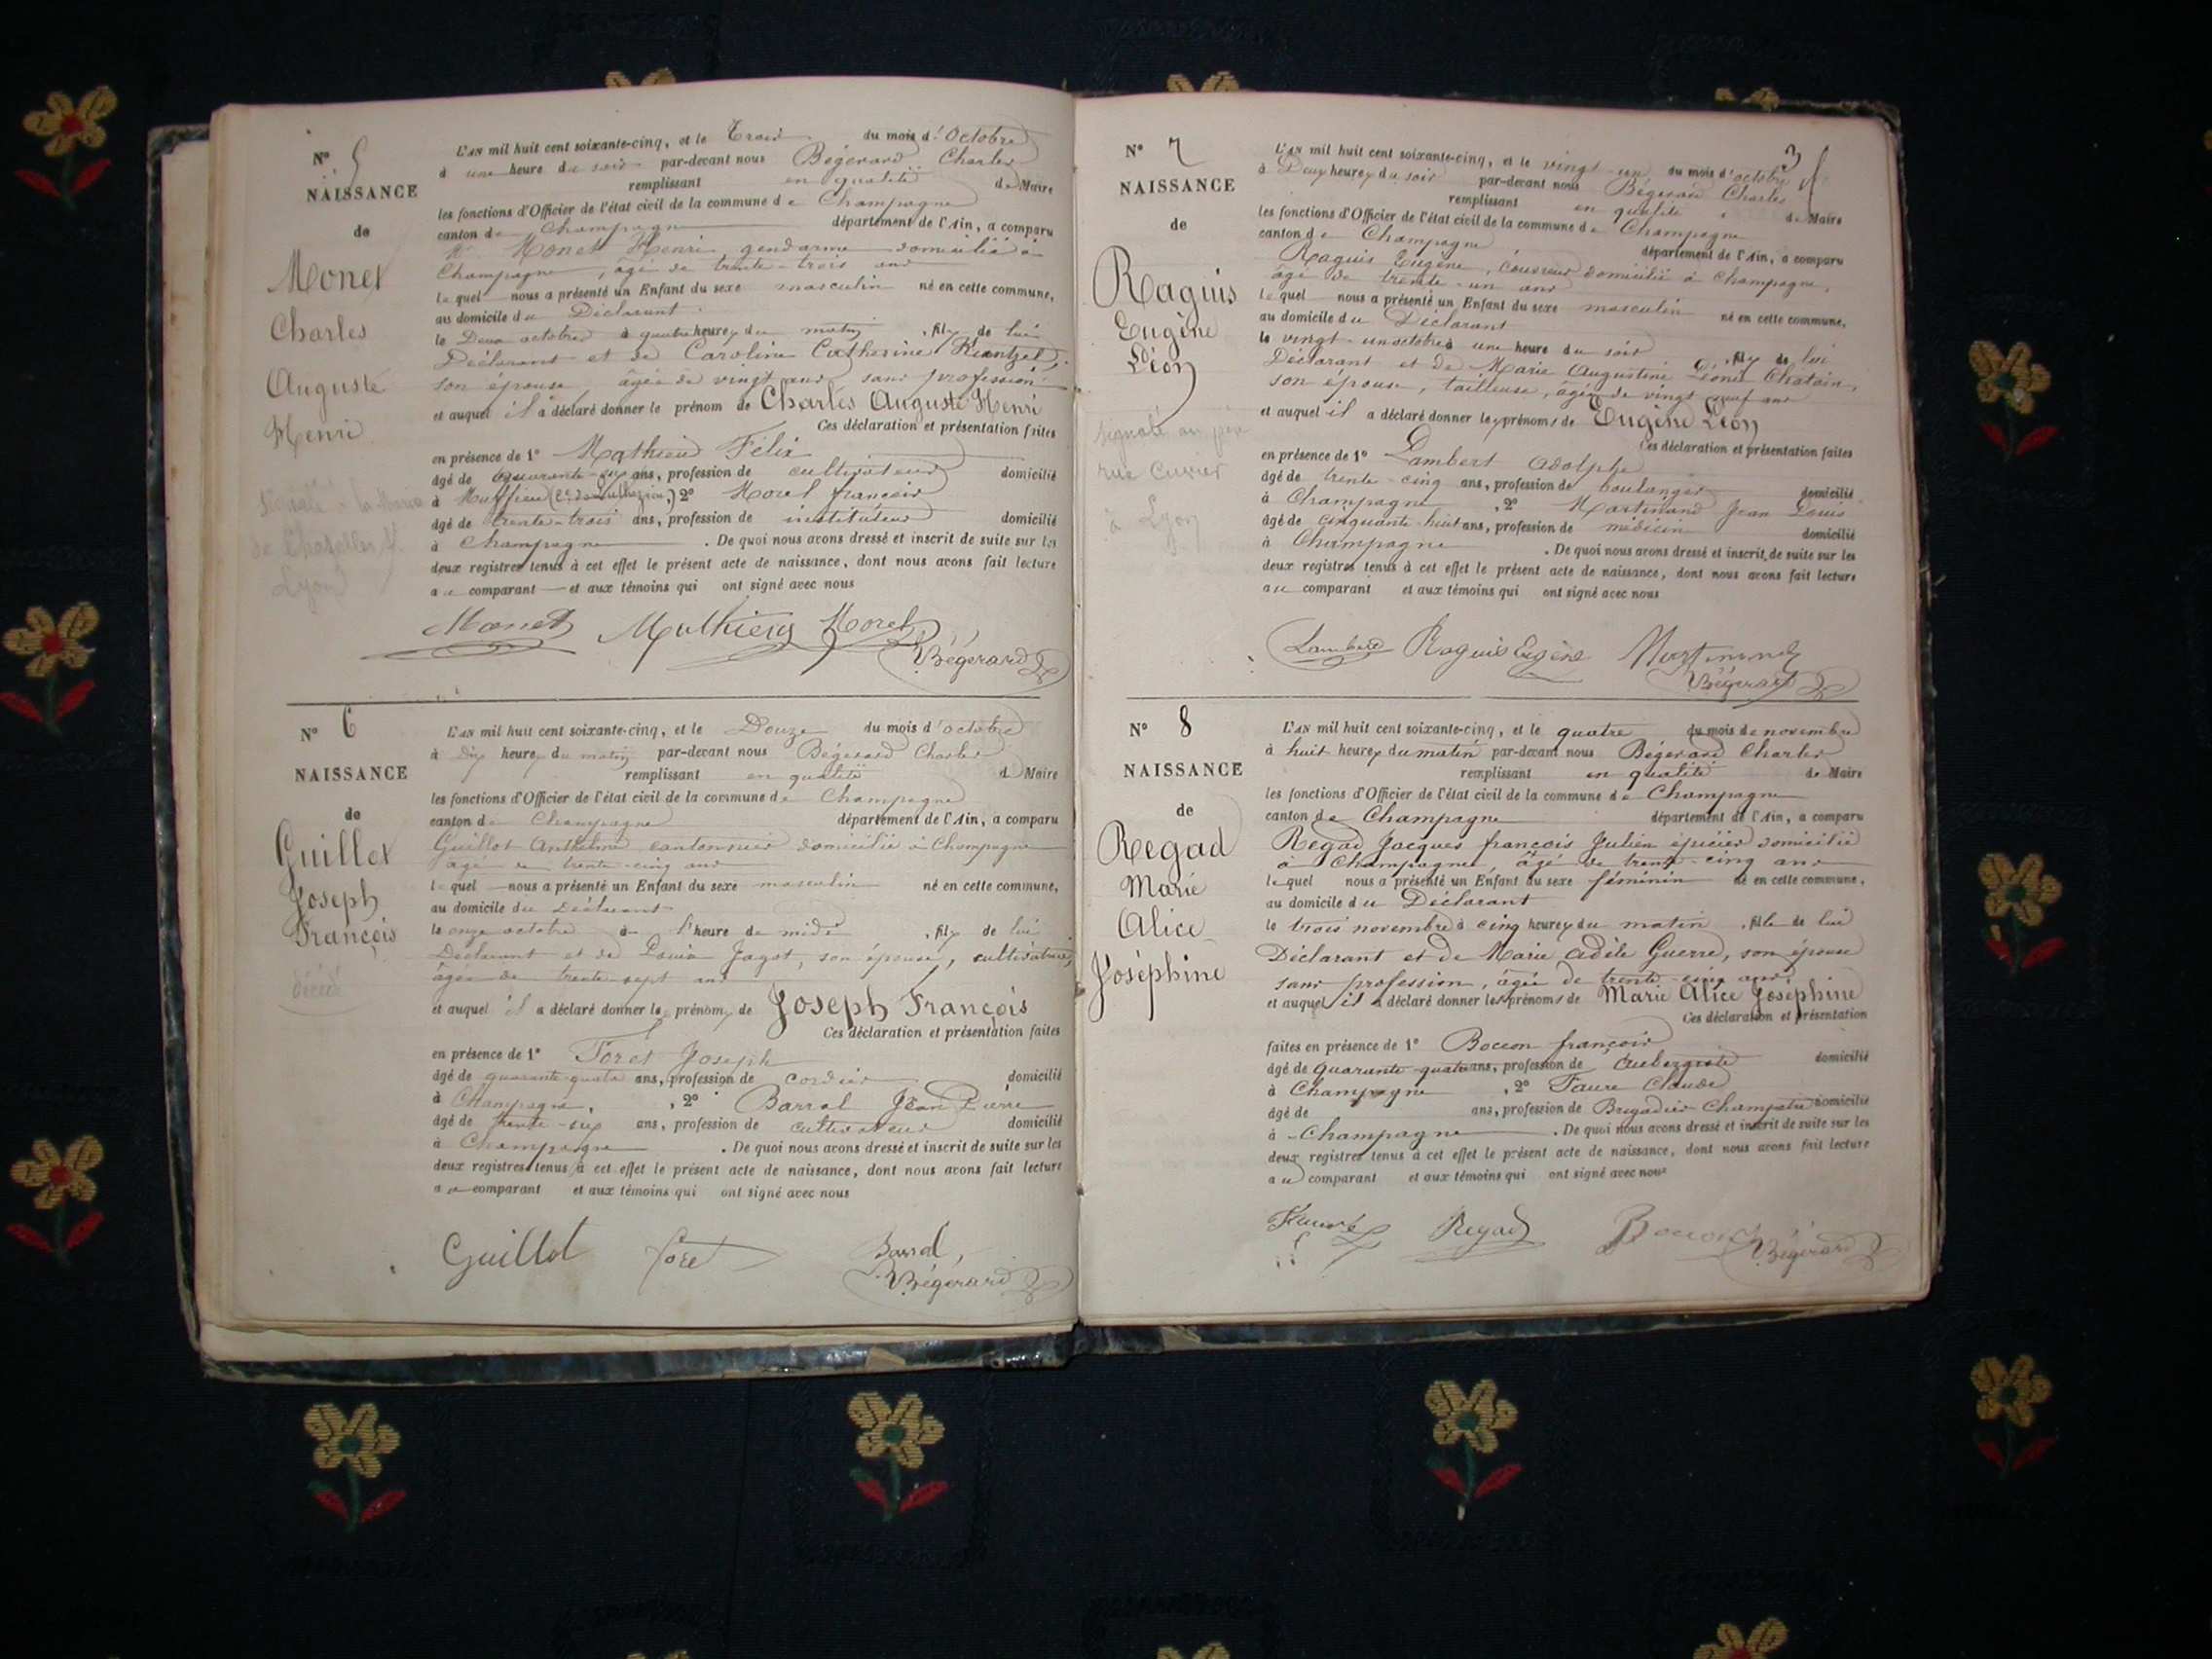 N° 5
NAISSANCE
de
Monet
Charles
Auguste
Henri
L'AN mil huit cent soixante-cinq, et le Trois du mois d'Octobre
à une heure du soir par-devant nous Bégerard Charles
remplissant en qualité de Maire
les fonctions d'Officier de l'état civil de la commune de Champagne
canton de Champagne département de l'Ain, a comparu
Monet Henri gendarme domicilié à
Champagne, âgé de trente-trois ans
lequel nous a présenté un Enfant du sexe masculin né en cette commune,
au domicile du Déclarant
le Deux octobre à quatre heures du matin, fils de lui
Déclarant et de Caroline Catherine
son épouse, âgée de vingt ans, sans profession
et auquel il a déclaré donner le prénom de Charles Auguste Henri
Ces déclaration et présentation faites
en présence de 1° Mathieu Félix
âgé de quarante-six ans, profession de cultivateur domicilié
à 2° Morel françois
âgé de trente-trois ans, profession de instituteur domicilié
à Champagne. De quoi nous avons dressé et inscrit de suite sur les
deux registres tenus à cet effet le présent acte de naissance, dont nous avons fait lecture
au comparant et aux témoins qui ont signé avec nous
Monet Mathieu Morel
Bégerard
N° 6
NAISSANCE
de
Guillot
Joseph
François
décédé
L'AN mil huit cent soixante-cinq, et le Douze du mois d'octobre
à dix heures du matin par-devant nous Bégerard Charles
remplissant en qualité de Maire
les fonctions d'Officier de l'état civil de la commune de Champagne
canton de Champagne département de l'Ain, a comparu
Guillot Anthelme cantonnier domicilié à Champagne
âgé de trente-cinq ans
lequel nous a présenté un Enfant du sexe masculin né en cette commune,
au domicile du Déclarant
le onze octobre à l'heure de midi, fils de lui
Déclarant et de Louise Jagot, son épouse, cultivatrice,
âgée de trente-sept ans
et auquel il a déclaré donner les prénoms de Joseph François
Ces déclaration et présentation faites
en présence de 1° Foret Joseph
âgé de quarante-quatre ans, profession de cordier domicilié
à Champagne, 2° Barral Jean Pierre
âgé de trente-six ans, profession de cultivateur domicilié
à Champagne. De quoi nous avons dressé et inscrit de suite sur les
deux registres tenus à cet effet le présent acte de naissance, dont nous avons fait lecture
au comparant et aux témoins qui ont signé avec nous
Guillot foret Barral,
Bégerard
3
N° 7
NAISSANCE
de
Raguis
Eugène
Léon
rue Cuvier
à Lyon
L'AN mil huit cent soixante-cinq, et le vingt-un du mois d'octobre
à Deux heures du soir par-devant nous Bégerard Charles
remplissant en qualité de Maire
les fonctions d'Officier de l'état civil de la commune de Champagne
canton de Champagne département de l'Ain, a comparu
Raguis Eugène, couvreur domicilié à Champagne,
âgé de trente-un ans
lequel nous a présenté un Enfant du sexe masculin né en cette commune,
au domicile du Déclarant
le vingt-un octobre à une heure du soir, fils de lui
Déclarant et de Marie Augustine Léonie Chatain,
son épouse, tailleuse, âgée de vingt neuf ans
et auquel il a déclaré donner les prénoms de Eugène Léon
Ces déclaration et présentation faites
en présence de 1° Lambert Adolphe
âgé de trente-cinq ans, profession de boulanger domicilié
à Champagne, 2° Martinand Jean Louis
âgé de cinquante-huit ans, profession de médecin domicilié
à Champagne. De quoi nous avons dressé et inscrit de suite sur les
deux registres tenus à cet effet le présent acte de naissance, dont nous avons fait lecture
au comparant et aux témoins qui ont signé avec nous
Lambert Raguis Eugène Martinand
Bégerard
N° 8
NAISSANCE
de
Regad
Marie
Alice
Joséphine
L'AN mil huit cent soixante-cinq, et le quatre du mois de novembre
à huit heures du matin par-devant nous Bégerard Charles
remplissant en qualité de Maire
les fonctions d'Officier de l'état civil de la commune de Champagne
canton de Champagne département de l'Ain, a comparu
Regad Jacques françois Julien épicier domicilié
à Champagne, âgé de trente-cinq ans
lequel nous a présenté un Enfant du sexe féminin né en cette commune,
au domicile du Déclarant
le trois novembre à cinq heures du matin, fille de lui
Déclarant et de Marie Adèle Guerre, son épouse
sans profession, âgée de trente-cinq ans
et auquel il a déclaré donner les prénoms de Marie Alice Joséphine
Ces déclaration et présentation
faites en présence de 1° Boccon françois
âgé de quarante-quatre ans, profession de Aubergiste domicilié
à Champagne, 2° Faure Claude
âgé de ans, profession de Brigadier Champêtre domicilié
à Champagne. De quoi nous avons dressé et inscrit de suite sur les
deux registres tenus à cet effet le présent acte de naissance, dont nous avons fait lecture
au comparant et aux témoins qui ont signé avec nous
Faure Regad Boccon
Bégerard